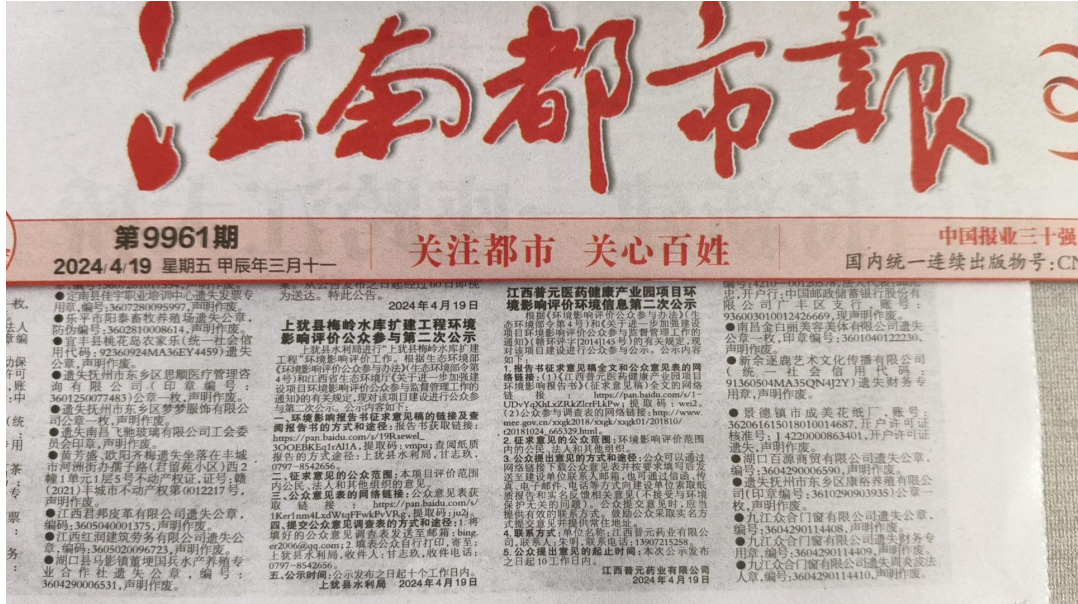 江南都市報
第9961期
2024/4/19 星期五 甲辰年三月十一
关注都市 关心百姓
中国报业三十强
国内统一连续出版物号:CN
●定南县佳宇职业培训中心遗失发票专
用章,编号:3607280095997,声明作废。
●乐平市阳泰畜牧养殖场遗失公章,
防伪编号:3602810008614,声明作废。
●宜丰县桃花岛农家乐(统一社会信
用代码:92360924MA36EY4459)遗失
公章,声明作废。
●遗失抚州市东乡区思顺医疗管理咨
询有限公司(印章编号:
3601250077483)公章一枚,声明作废。
●遗失抚州市东乡区梦梦服饰有限公
司公章一枚,声明作废。
●遗失南昌飞驰玻璃有限公司工会委
员会印章,声明作废。
●黄芳盛、欧阳齐梅遗失坐落在丰城
市河洲街办孺子路(君留苑小区)西2
幢1单元1层5号不动产权证,证号:赣
(2021)丰城市不动产权第0012217号,
声明作废。
●江西君邦皮革有限公司遗失公章,
编码:3605040001375,声明作废。
●江西红润建筑劳务有限公司遗失公
章,编码:3605020096723,声明作废。
●湖口县马影镇董埂国兵水产养殖专
业合作社遗失公章,编号:
3604290006531,声明作废。
为送达。特此公告。
2024年4月19日
上犹县梅岭水库扩建工程环境
影响评价公众参与第二次公示
上犹县水利局进行“上犹县梅岭水库扩建
工程”环境影响评价工作。根据生态环境部
《环境影响评价公众参与办法》(生态环境部令第
4号)和江西省生态环境厅《关于进一步加强建
设项目环境影响评价公众参与监督管理工作的
通知》的有关规定,现对该项目建设进行公众参
与第二次公示。公示内容如下:
一、环境影响报告书征求意见稿的链接及查
阅报告书的方式和途径:报告书获取链接:
https://pan.baidu.com/s/19Rsewel_
提取码:vmpu;查阅纸质
报告的方式途径:上犹县水利局,甘志玖,
0797-8542656。
二、征求意见的公众范围:本项目评价范围
内公民、法人和其他组织的意见。
三、公众意见表的网络链接:公众意见表获
取链接:https://pan.baidu.com/s/
1Ker1nm4LxdWtqFFwkPvVRg,提取码:ju2j。
四、提交公众意见调查表的方式和途径:1.将
填好的公众意见调查表发送至邮箱:bing.
er2006@qq.com;2.填表公众自行打印,寄至:
上犹县水利局,收件人:甘志玖,收件电话:
0797-8542656。
五、公示时间:公示发布之日起十个工作日内。
上犹县水利局 2024年4月19日
江西普元医药健康产业园项目环
境影响评价环境信息第二次公示
根据《环境影响评价公众参与办法》(生
态环境部令第4号)和《关于进一步加强建设
项目环境影响评价公众参与监督管理工作的
通知》(赣环评字[2014]145号)的有关规定,现
对该项目建设进行公众参与公示。公示内容
如下:
1.报告书征求意见稿全文和公众意见表的网
络链接:(1)《江西普元医药健康产业园项目
环境影响报告书》(征求意见稿)全文的网络
链接:https://pan.baidu.com/s/1-
UDvYqXhLxZRkZlcrFLkPw;提取码:wei2。
(2)公众参与调查表的网络链接:http://www.
mee.gov.cn/xxgk2018/xxgk/xxgk01/201810/
t20181024_665329.html。
2.征求意见的公众范围:环境影响评价范围
内的公民、法人和其他组织。
3.公众提出意见的方式和途径:公众可以通过
网络链接下载公众意见表并按要求填写后发
送至建设单位联系人邮箱,也可通过信函、传
真、电子邮件、电话等方式向建设单位索取纸
质报告和实名反馈相关意见(不接受与环境
保护无关的问题)。公众提交意见时,应当
提供有效的联系方式。鼓励公众采取实名方
式提交意见并提供常住地址。
4.联系方式:单位名称:江西普元药业有限公
司,联系人:朱明,联系电话:13907215258。
5.公众提出意见的起止时间:本次公示发布
之日起10个工作日内。
江西普元药业有限公司
2024年4月19日
出,开户行:中国邮政储蓄银行股份有
限公司广丰区支行,编号:
936003010012426669,现声明作废。
●南昌金白丽美容美体有限公司遗失
公章一枚,印章编号:3601040122230,
声明作废。
●新余逐鹿艺术文化传播有限公司
(统一社会信用代码:
91360504MA35QN4J2Y)遗失财务专
用章,声明作废。
●景德镇市成美花纸厂,账号:
36206161501801001468​7,开户许可证
核准号:J4220000863401,开户许可证
遗失,声明作废。
●湖口百源商贸有限公司遗失公章,
编号:3604290006590,声明作废。
●遗失抚州市东乡区康裕养殖有限公
司(印章编号:3610290903935)公章一
枚,声明作废。
●九江众合门窗有限公司遗失公章,
编号:3604290114408,声明作废。
●九江众合门窗有限公司遗失财务专
用章,编号:3604290114409,声明作废。
●九江众合门窗有限公司遗失周炎波法
人章,编号:3604290114410,声明作废。